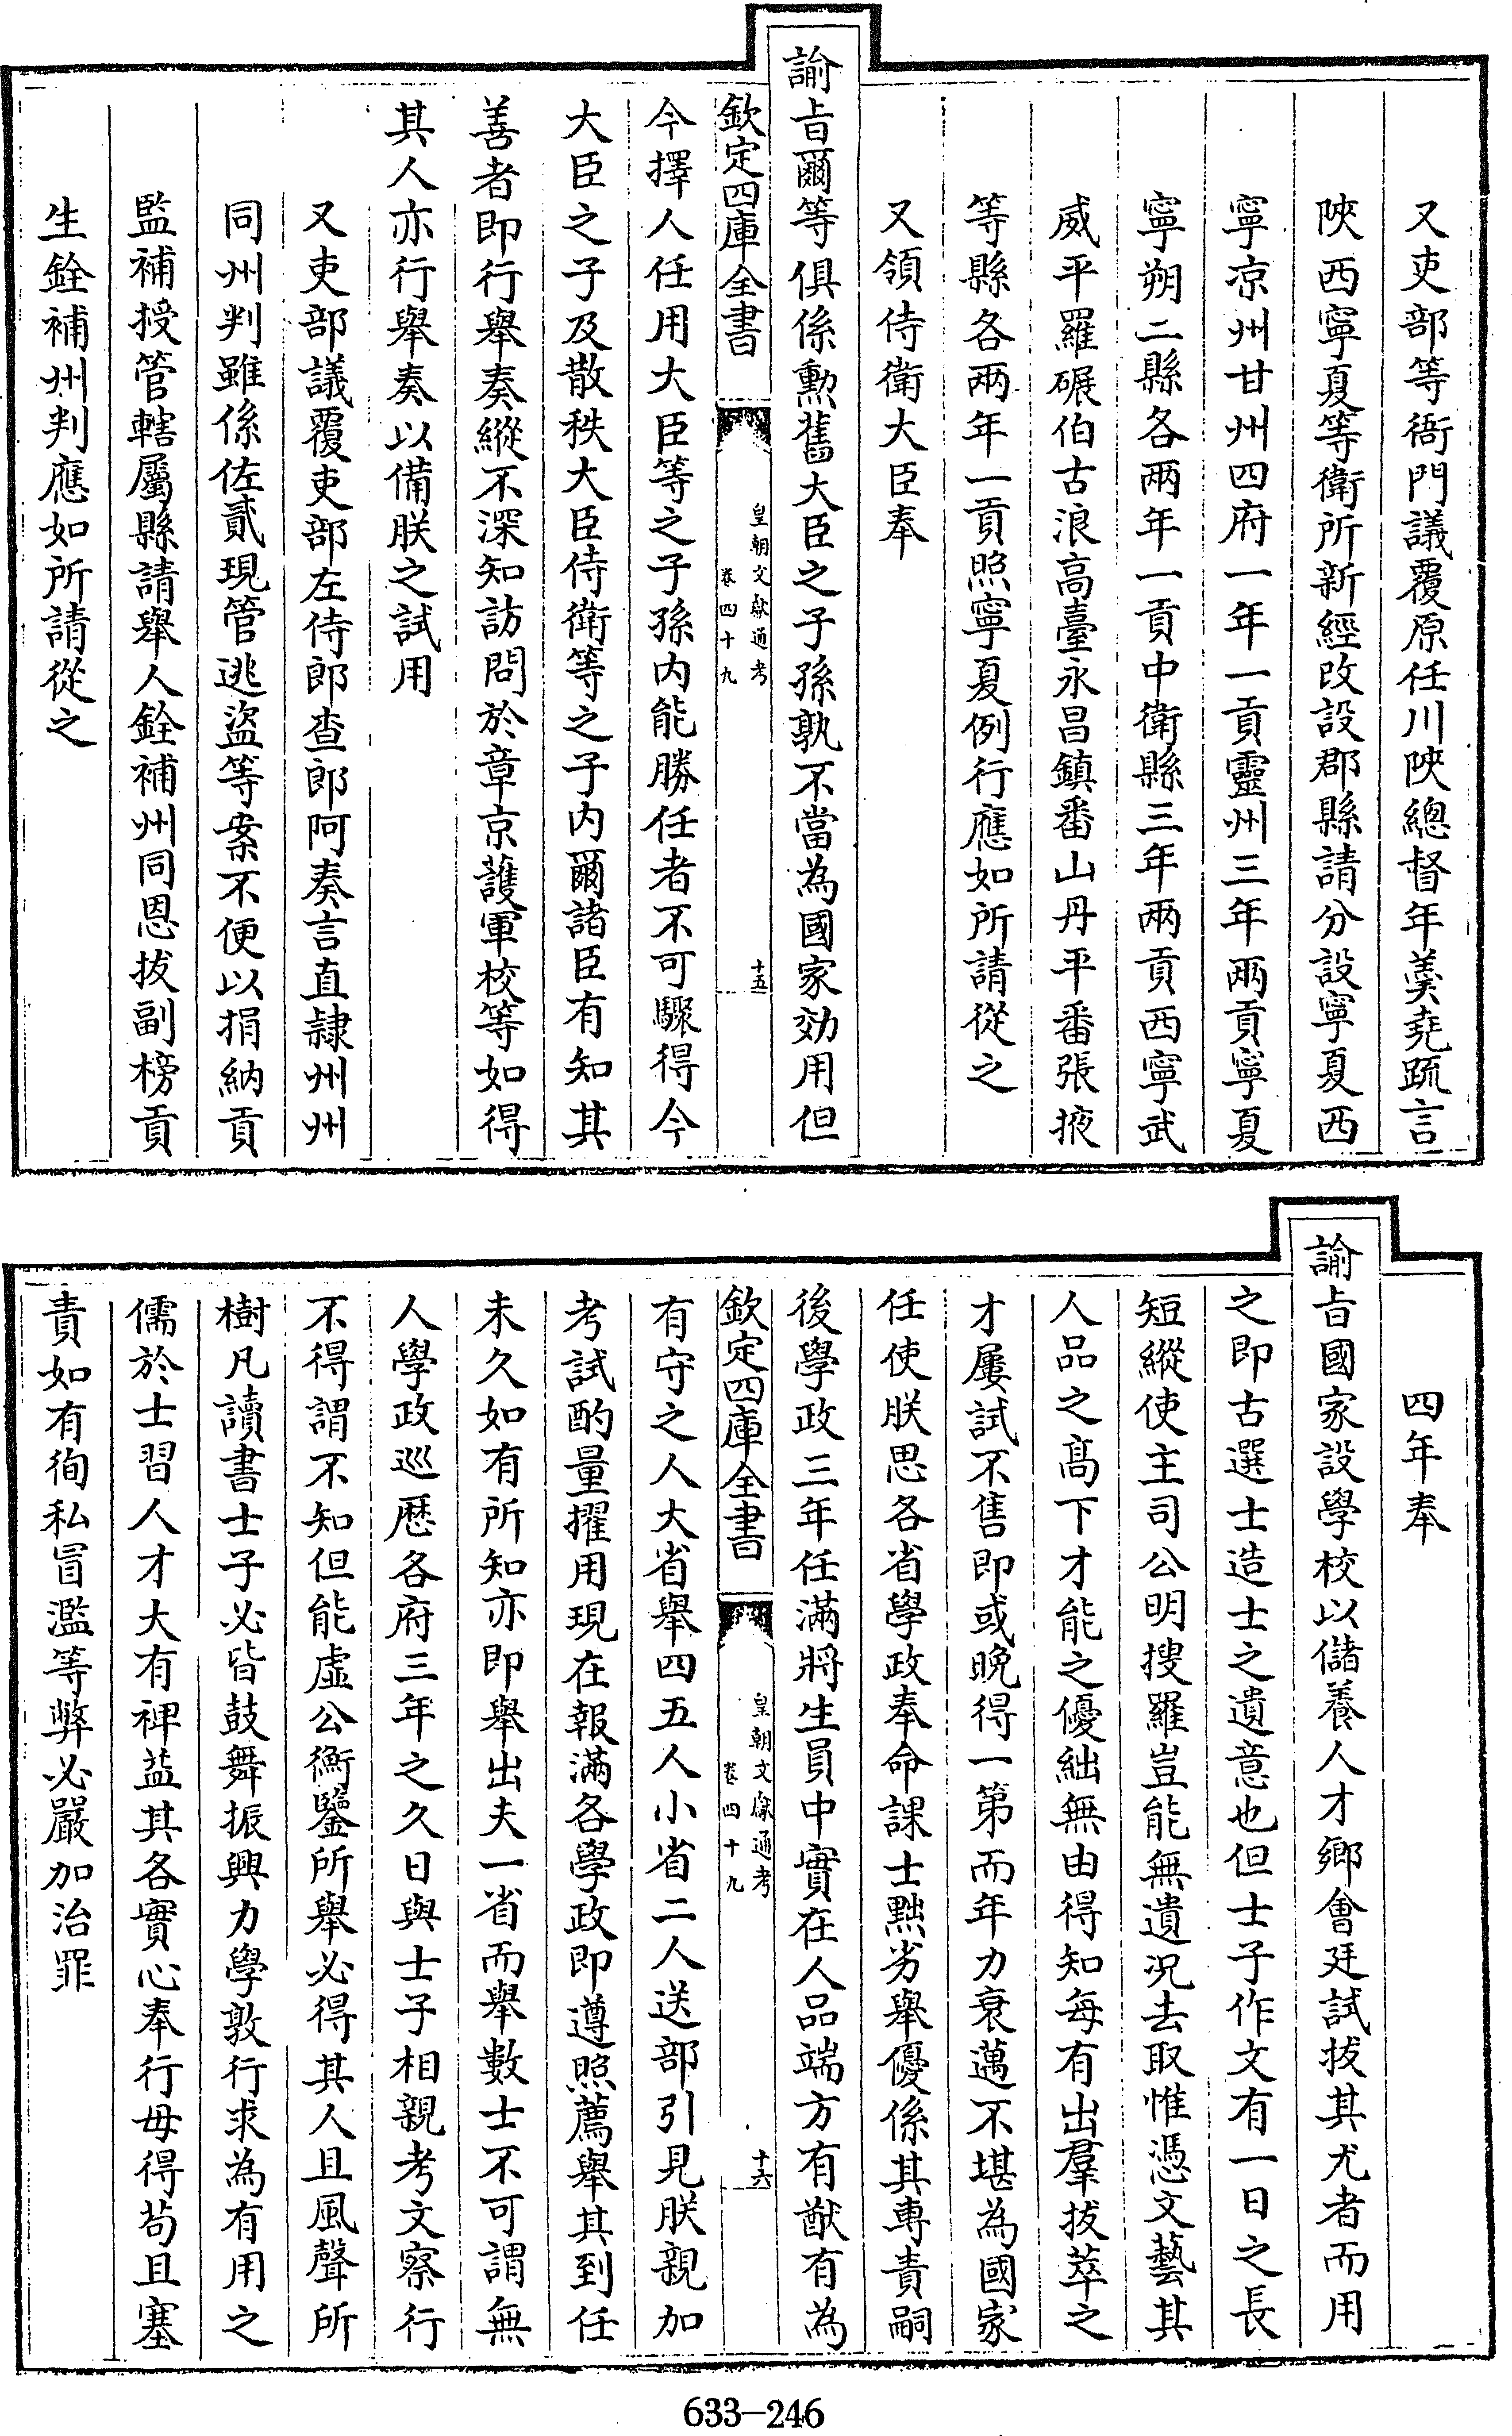 又吏部等衙門議覆原任川陜總督年羮堯疏言
陜西寧夏等衛所新經改設郡縣請分設寧夏西
寧凉州甘州四府一年一貢靈州三年兩貢寧夏
寧朔二縣各兩年一貢中衛縣三年兩貢西寧武
威平羅碾伯古浪高臺永昌鎮番山丹平番張掖
等縣各兩年一貢照寧夏例行應如所請從之
又領侍衛大臣奉
諭旨爾等俱係勲舊大臣之子孫孰不當為國家効用但
欽定四庫全書
皇朝文獻通考
卷四十九
十五
今擇人任用大臣等之子孫内能勝任者不可驟得今
大臣之子及散秩大臣侍衛等之子内爾諸臣有知其
善者即行舉奏縱不深知訪問於章京護軍校等如得
其人亦行舉奏以備朕之試用
又吏部議覆吏部左侍郎查郎阿奏言直隷州州
同州判雖係佐貳現管逃盜等案不便以捐納貢
監補授管轄屬縣請舉人銓補州同恩拔副榜貢
生銓補州判應如所請從之
四年奉
諭旨國家設學校以儲養人才鄉會廷試拔其尤者而用
之即古選士造士之遺意也但士子作文有一日之長
短縱使主司公明搜羅豈能無遺况去取惟憑文藝其
人品之髙下才能之優絀無由得知每有出羣拔萃之
才屢試不售即或晚得一第而年力衰邁不堪為國家
任使朕思各省學政奉命課士黜劣舉優係其專責嗣
後學政三年任滿將生員中實在人品端方有猷有為
欽定四庫全書
皇朝文獻通考
卷四十九
十六
有守之人大省舉四五人小省二人送部引見朕親加
考試酌量擢用現在報滿各學政即遵照薦舉其到任
未久如有所知亦即舉出夫一省而舉數士不可謂無
人學政巡歷各府三年之久日與士子相親考文察行
不得謂不知但能虛公衡鑒所舉必得其人且風聲所
樹凡讀書士子必皆鼓舞振興力學敦行求為有用之
儒於士習人才大有裨益其各實心奉行毋得苟且塞
責如有徇私冒濫等弊必嚴加治罪
633-246